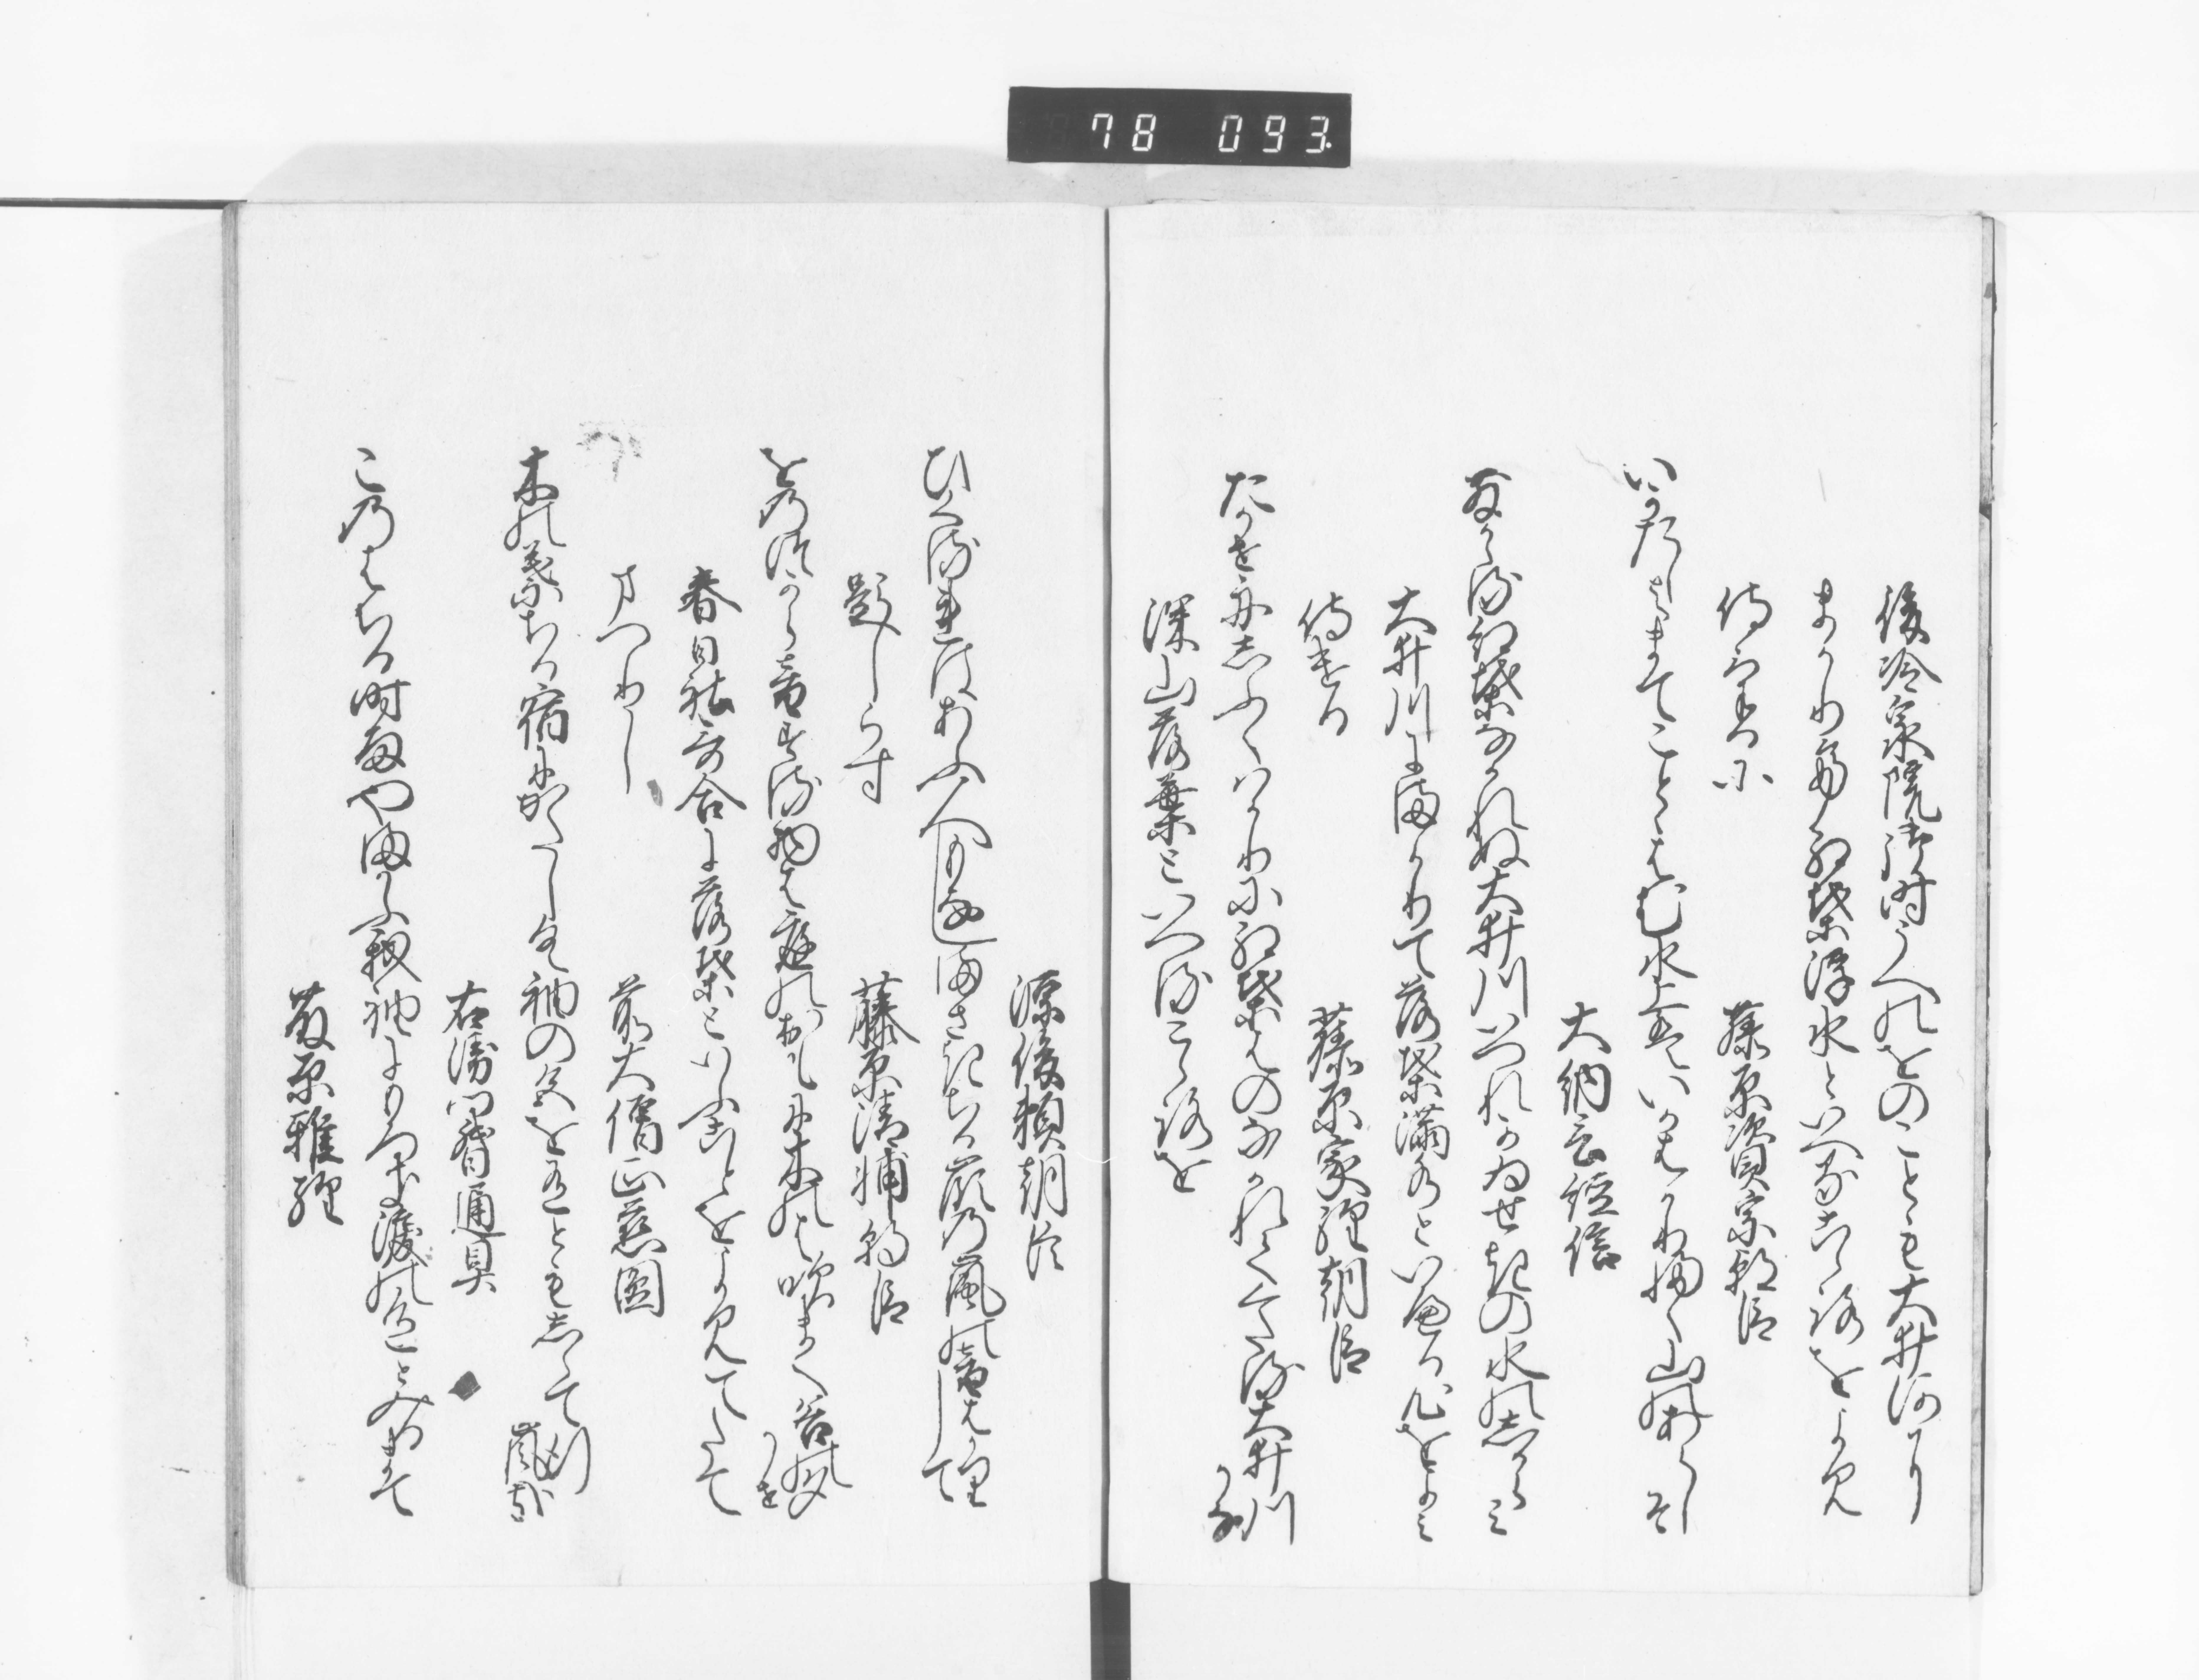 78 093
後冷泉院御時うへのをのことも大井河に
まかりて紅葉浮水といへるこゝろをよみ
侍りけるに 藤原資宗朝臣
いかたしよまてことゝはむ水上はいかはかりふく山のあらしそ
大納言経信
ちりかゝる紅葉なかれぬ大井川いつれかゐせきの水のしからみ
大井川にまかりて落葉満水といへる心をよみ
侍ける 藤原家経朝臣
たかせ舟しふくはかりに紅葉はのなかれてくたる大井川かな
深山落葉といへるこゝろを
源俊頼朝臣
ひくるれはあふ人もなしまさきちる峯の嵐の音はかりして
題しらす 藤原清輔朝臣
をのつから音する物は庭のおもに木の葉吹まく谷の夕かせ
春日社哥合に落葉といふことをよみてたて
まつりし 前大僧正慈圓
木の葉ちる宿にかたしく袖の色をありともしらて行嵐哉
右衛門督通具
このはちる時雨やまかふ我袖にもろき涙の色とみるまて
藤原雅経